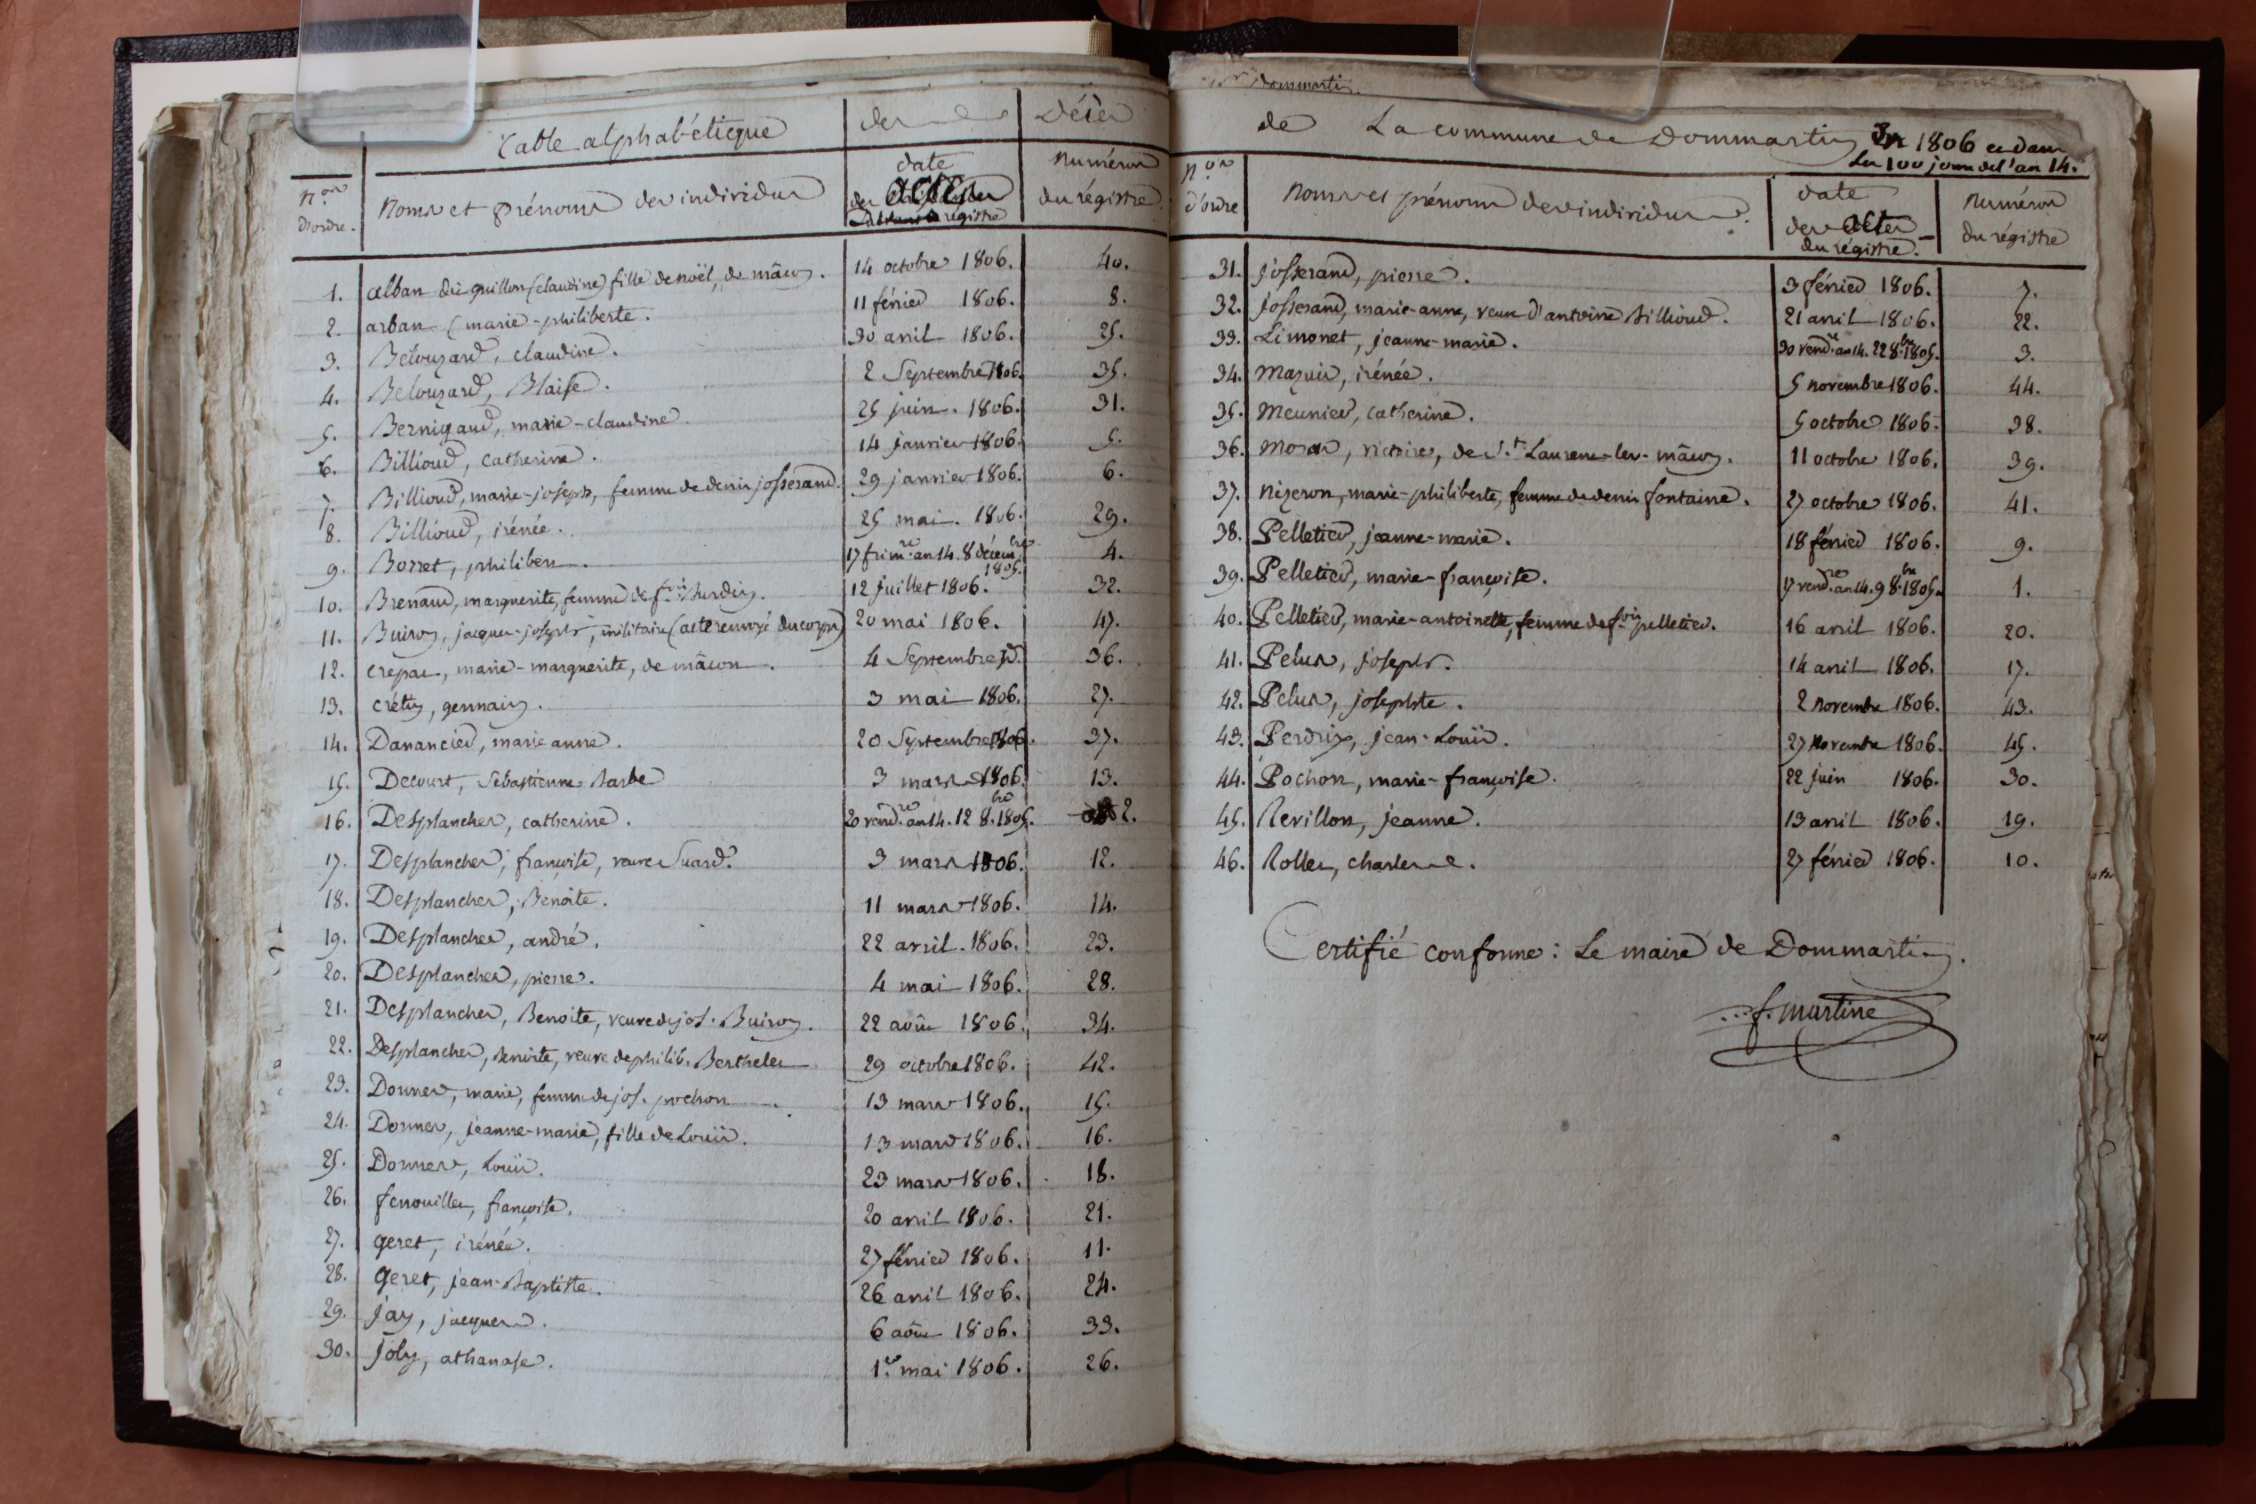 Table alphabétique des Décès
Nos d'ordre. Noms et prénoms des individus date des actes du registre numéros du régistre.
1. alban dit guillon (claudine) fille de noël, de mâcon. 14 octobre 1806. 40.
2. arban (marie-philiberte. 11 février 1806. 8.
3. Belouzard, claudine. 30 avril 1806. 25.
4. Belouzard, Blaise. 2 Septembre 1806. 35.
5. Bernigaud, marie-claudine. 25 juin. 1806. 31.
6. Billioud, catherine. 14 janvier 1806. 5.
7. Billioud, marie-joseph, femme de denis josserand. 29 janvier 1806. 6.
8. Billioud, irénée. 25 mai. 1806. 29.
9. Borret, philibert. 17 frim.re an 14. 8 décem.bre 1805. 4.
10. Brenaud, marguerite, femme de f.ois 12 juillet 1806. 32.
11. Buiron, jacques-joseph, militaire (acte envoyé du corps) 20 mai 1806. 47.
12. crepat, marie-marguerite, de mâcon. 4 Septembre id. 36.
13. crétin, germain. 3 mai 1806. 27.
14. Danancier, marie anne. 20 Septembre 1806. 37.
15. Decourt, Sébastienne Barbe 3 mars 1806. 13.
16. Desplanches, catherine. 20 vend.re an 14. 12 8.bre 1805. 2.
17. Desplanches, françoise, veuve Suard. 3 mars 1806. 12.
18. Desplanches, Benoite. 11 mars 1806. 14.
19. Desplanches, andré. 22 avril. 1806. 23.
20. Desplanches, pierre. 4 mai 1806. 28.
21. Desplanches, Benoite, veuve de jos. Buiron. 22 août 1806. 34.
22. Desplanches, Benoite, veuve de philib. Berthelet 29 octobre 1806. 42.
23. Donnet, marie, femme de jos. pochon. 13 mars 1806. 15.
24. Donnet, jeanne-marie, fille de Louis. 13 mars 1806. 16.
25. Donnet, Louis. 23 mars 1806. 18.
26. fenouillet, françoise. 20 avril 1806. 21.
27. geret, irénée. 27 février 1806. 11.
28. geret, jean-Baptiste. 26 avril 1806. 24.
29. jay, jacques. 6 août 1806. 33.
30. joly, athanase. 1.er mai 1806. 26.
Dommartin.
de La commune de Dommartin En 1806 et dans
Les 100 jours de l'an 14.
Nos d'ordre Noms et prénoms des individus. date des actes du régistre. numéros du régistre
31. josserand, pierre. 3 février 1806. 7.
32. josserand, marie-anne, veuve d'antoine Billioud. 21 avril 1806. 22.
33. Limonet, jeanne-marie. 30 vend.re an 14. 22 8.bre 1805. 3.
34. Mazuir, irénée. 5 novembre 1806. 44.
35. Meunier, catherine. 5 octobre 1806. 38.
36. victoire, de S.t Laurent-les-mâcon. 11 octobre 1806. 39.
37. Nizeron, marie-philiberte, femme de denis fontaine. 27 octobre 1806. 41.
38. Pelletier, jeanne-marie. 18 février 1806. 9.
39. Pelletier, marie-françoise. 17 vend.re an 14. 9 8.bre 1805. 1.
40. Pelletier, marie-antoinette, femme de f.ois pelletier. 16 avril 1806. 20.
41. Pelus, joseph. 14 avril 1806. 17.
42. Pelus, josephte. 2 novembre 1806. 43.
43. Perdrix, jean-Louis. 27 novembre 1806. 45.
44. Pochon, marie-françoise. 22 juin 1806. 30.
45. Revillon, jeanne. 13 avril 1806. 19.
46. Rollet, charles. 27 février 1806. 10.
Certifié conforme: Le maire de Dommartin.
f. martine